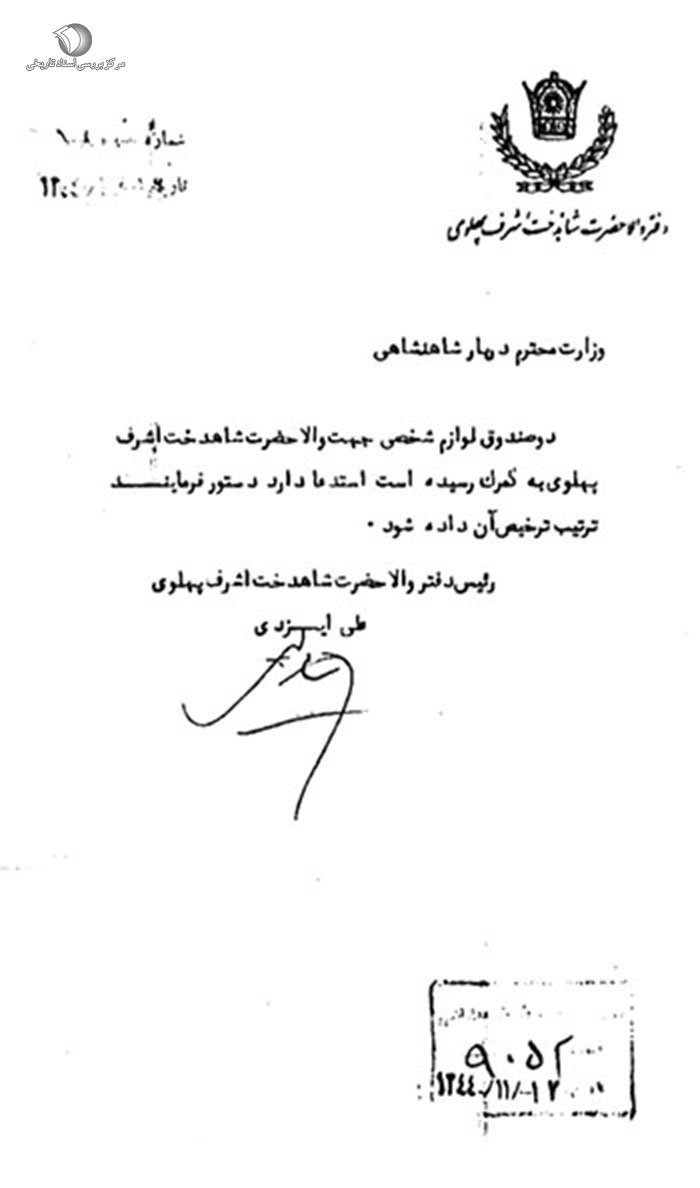 مرکز بررسی اسناد تاریخی
شماره
تاریخ
دفتر والاحضرت شاهدخت اشرف پهلوی
وزارت محترم دربار شاهنشاهی
دو صندوق لوازم شخصی جهت والاحضرت شاهدخت اشرف
پهلوی به گمرك رسیده است استدعا دارد دستور فرماینـــــد
ترتیب ترخیص آن داده شود ۰
رئیس دفتر والاحضرت شاهدخت اشرف پهلوی
علی ایـــزدی
۹۰۵۲
۱۳۴۴/۱۱/۱۲